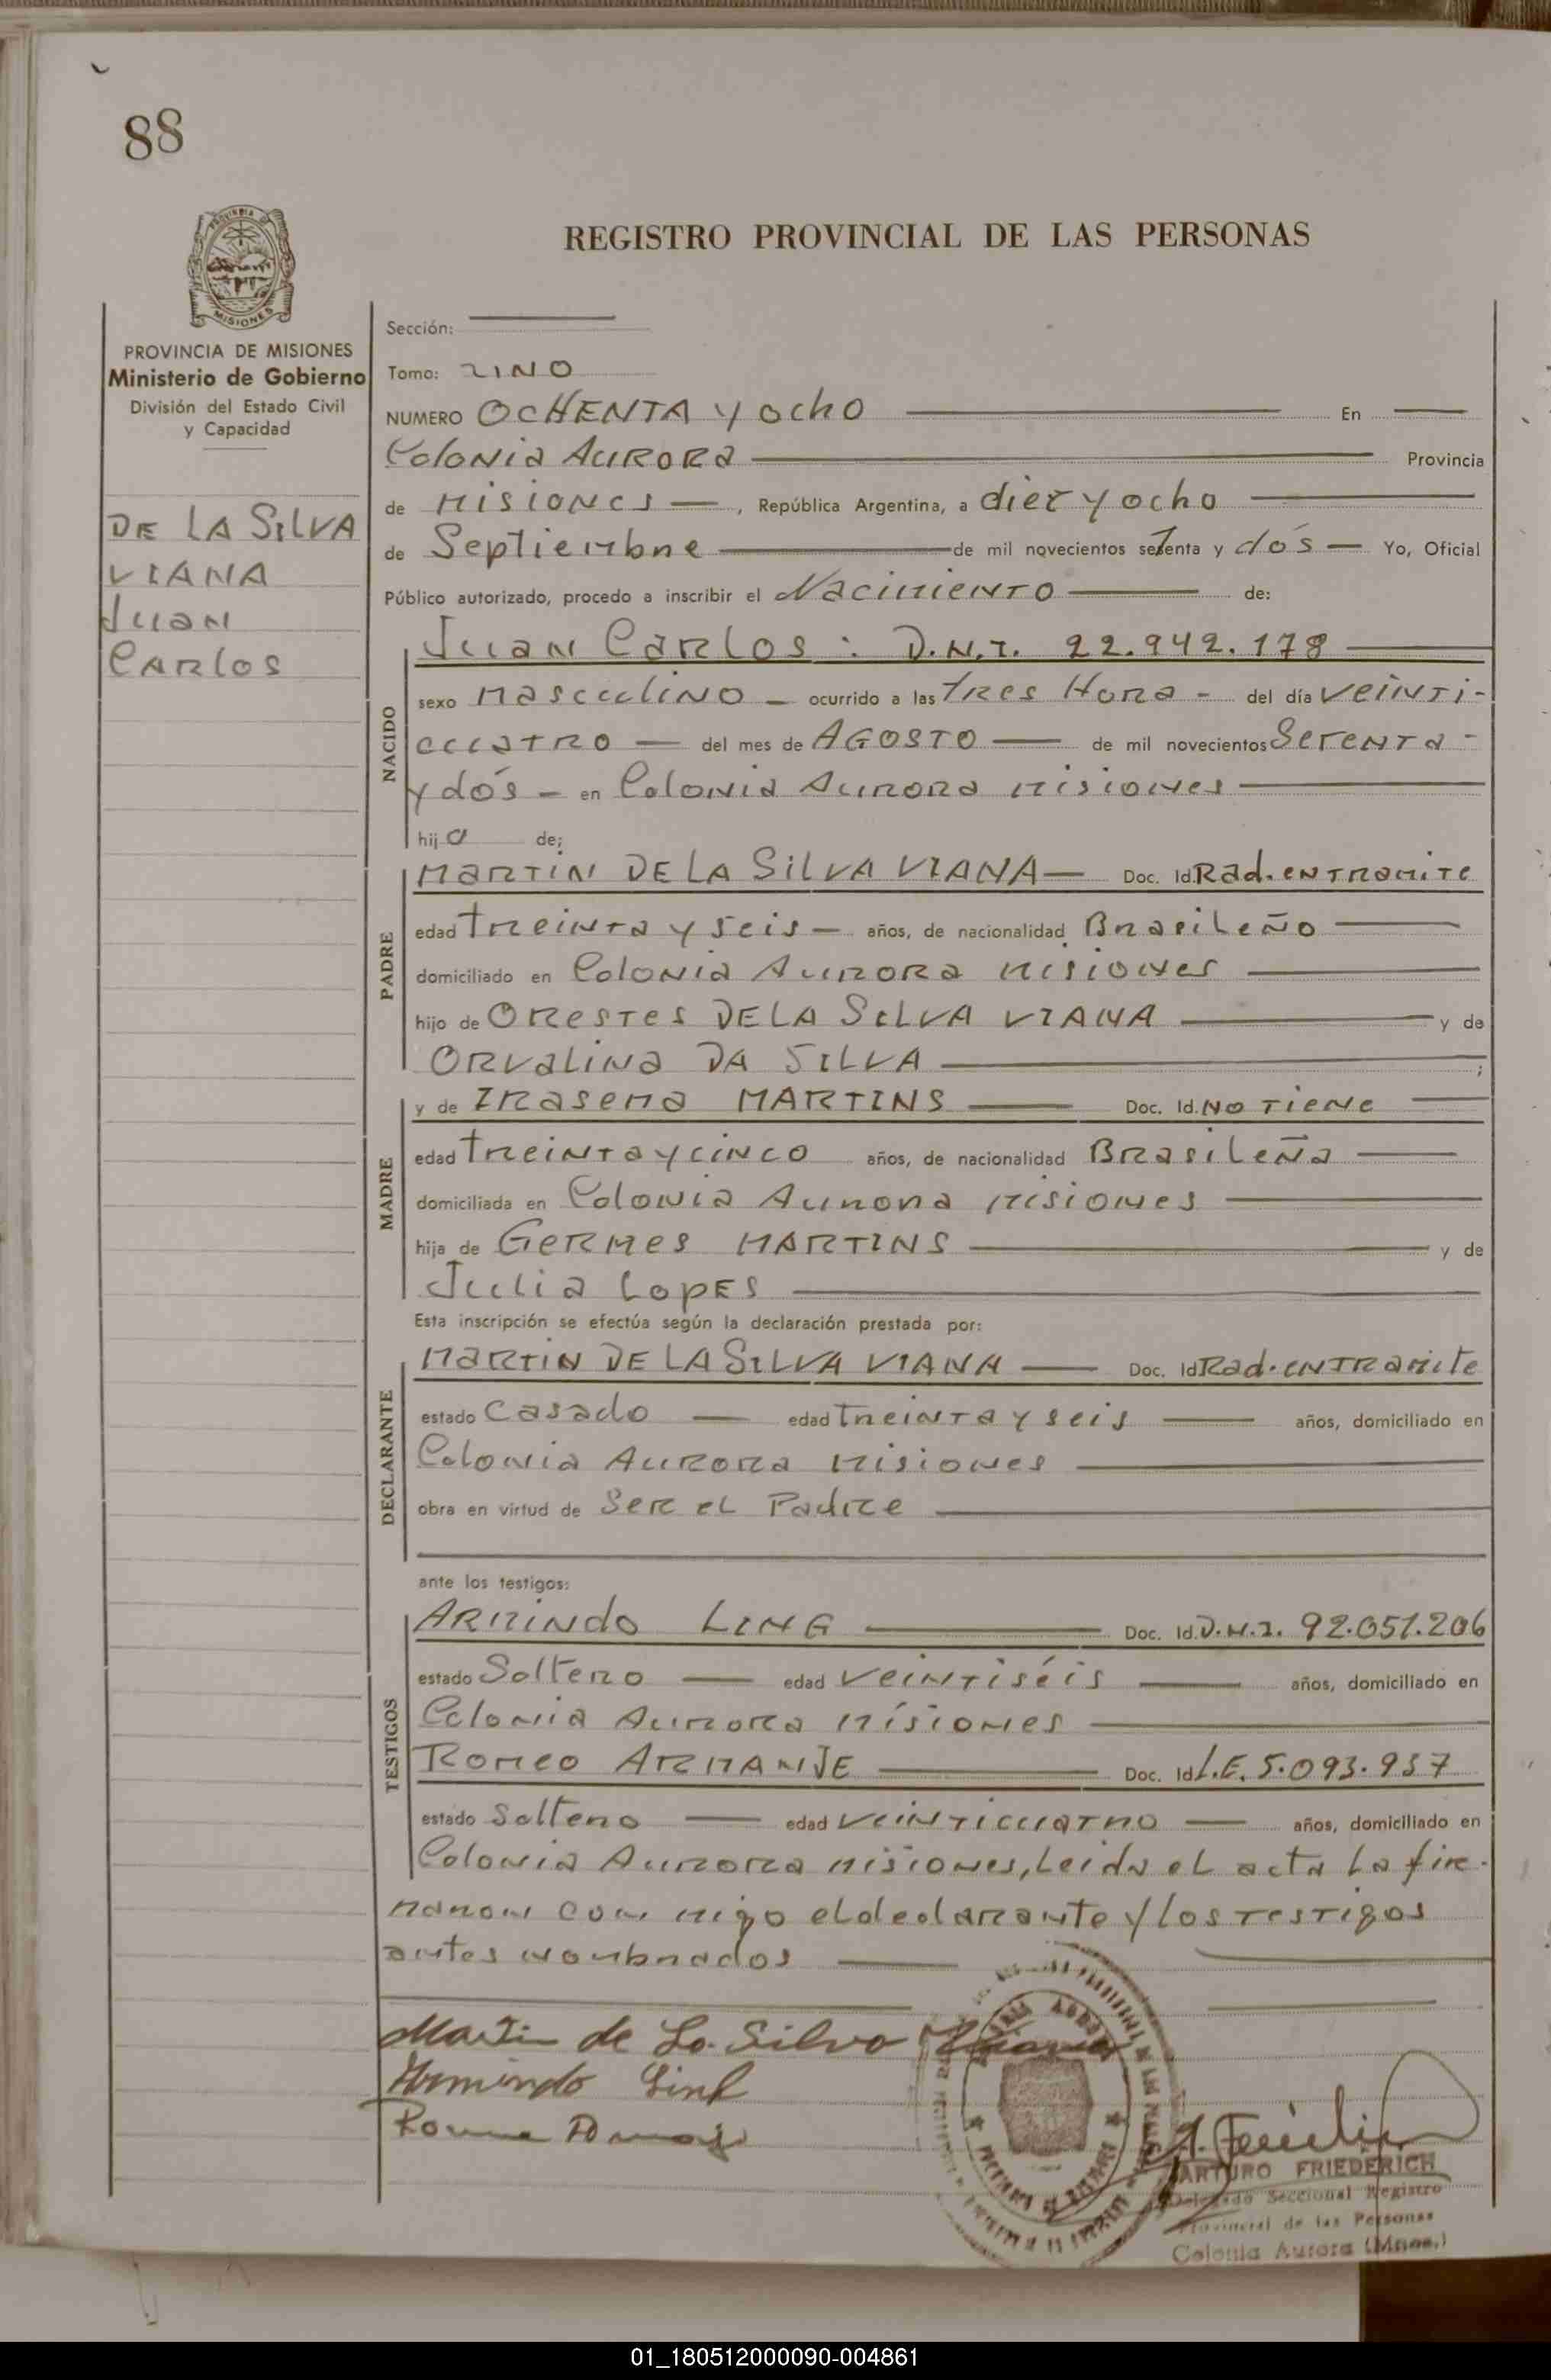 88
REGISTRO PROVINCIAL DE LAS PERSONAS
PROVINCIA
MISIONES
PROVINCIA DE MISIONES
Ministerio de Gobierno
División del Estado Civil
y Capacidad
DE LA SILVA
VIANA
Juan
CARLOS
Sección:
Tomo: UNO
NUMERO OCHENTA y ocho En
Colonia AURORA Provincia
de MISIONES, República Argentina, a diez y ocho
de Septiembre de mil novecientos setenta y dós Yo, Oficial
Público autorizado, procedo a inscribir el Nacimiento de:
NACIDO
Juan Carlos: D.N.I. 22.942.178
sexo masculino ocurrido a las tres Hora del día veinti-
cuatro del mes de AGOSTO de mil novecientos Setenta
y dós en Colonia Aurora misiones
hijo de;
PADRE
MARTIN DE LA SILVA VIANA Doc. Id. Rad. en tramite
edad treinta y seis años, de nacionalidad Brasileño
domiciliado en Colonia Aurora misiones
hijo de ORESTES DE LA SILVA VIANA y de
ORVALINA DA SILVA ;
MADRE
y de IRASEMA MARTINS Doc. Id. NO TIENE
edad treinta y cinco años, de nacionalidad Brasileña
domiciliada en Colonia Aurora misiones
hija de GERMES MARTINS y de
Julia LOPES
Esta inscripción se efectúa según la declaración prestada por:
DECLARANTE
MARTIN DE LA SILVA VIANA Doc. Id Rad. en tramite
estado Casado edad treinta y seis años, domiciliado en
Colonia Aurora misiones
obra en virtud de Ser el Padre
ante los testigos:
TESTIGOS
ARMINDO LING Doc. Id. D.N.I. 92.051.206
estado Soltero edad veintiséis años, domiciliado en
Colonia Aurora misiones
ROMEO ARMANJE Doc. Id L.E. 5.093.937
estado Soltero edad veinticuatro años, domiciliado en
Colonia Aurora misiones, leida el acta la fir-
maron con migo el declarante y los testigos
antes nombrados
Martin de La Silva Viana
Armindo Ling
ARTURO FRIEDERICH
Delegado Seccional Registro
Provincial de las Personas
Colonia Aurora (Mnes.)
01_180512000090-004861